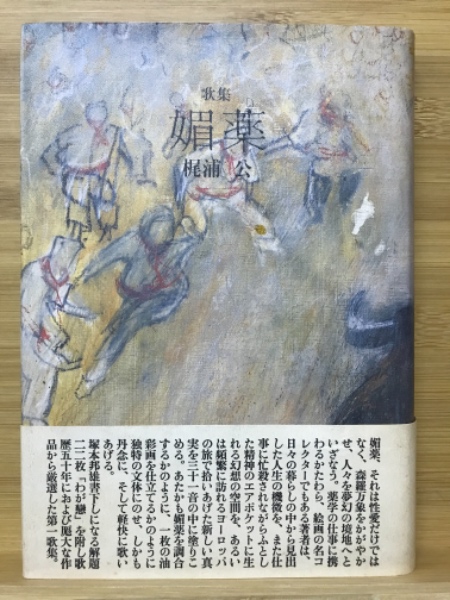 歌集
媚薬
梶浦 公
媚薬、それは性愛だけでは
なく、森羅万象をかがやか
せ、人々を夢幻の境地へと
いざなう。薬学の仕事に携
わるかたわら、絵画の名コ
レクターでもある著者は、
日々の暮らしの中から見出
した人生の機微を、また仕
事に忙殺されながらふとし
た精神のエアポケットに生
れる幻想の空間を、あるい
は頻繁に訪れるヨーロッパ
の旅で拾いあげた新しい真
実を三十一音の中に塗りこ
める。あたかも媚薬を調合
するかのように、一枚の油
彩画を仕立てるかのように
独特の文体にのせ、しかも
丹念に、そして軽快に歌い
あげる。
塚本邦雄書下しになる解題
二二枚『わが戀』を附し歌
歴五十年におよぶ厖大な作
品から厳選した第一歌集。